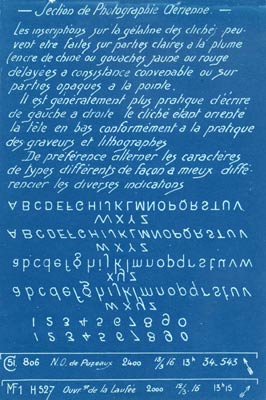 — Section de Photographie Aérienne. —
Les inscriptions sur la gélatine des clichés peu-
vent être faites sur parties claires à la plume
(encre de chine ou gouaches jaune ou rouge
delayées à consistance convenable ou sur
parties opaques à la pointe.
Il est généralement plus pratique d'écrire
de gauche à droite le cliché étant orienté
la tête en bas conformément à la pratique
des graveurs et lithographes
De préférence alterner les caractères
de types différents de façon à mieux diffé-
rencier les diverses indications
A B C D E F G H I J K L M N O P Q R S T U V
W X Y Z
A B C D E F G H I J K L M N O P Q R S T U V
W X Y Z
a b c d e f g h i j k l m n o p q r s t u v w
x y z
a b c d e f g h i j k l m n o p q r s t u v
w x y z
1 2 3 4 5 6 7 8 9 0
1 2 3 4 5 6 7 8 9 0
806 N.O. de Puzeaux 2400 13/3 16 13h 34.543
MF1 H527 Ouvr. de la Laufée 2000 16 13h15